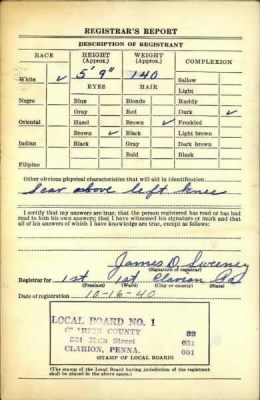 REGISTRAR'S REPORT
DESCRIPTION OF REGISTRANT
RACE HEIGHT (Approx.) WEIGHT (Approx.) COMPLEXION
5' 9" 140
White ✓ EYES HAIR Sallow
Light
Negro Blue Blonde Ruddy
Gray Red Dark ✓
Oriental Hazel Brown Freckled
Brown ✓ Black ✓ Light brown
Indian Black Gray Dark brown
Bald Black
Filipino
Other obvious physical characteristics that will aid in identification
Scar above left knee
I certify that my answers are true; that the person registered has read or has had
read to him his own answers; that I have witnessed his signature or mark and that
all of his answers of which I have knowledge are true, except as follows:
James D. Sweeney
(Signature of registrar)
Registrar for 1st 1st Clarion Pa
(Precinct) (Ward) (City or county) (State)
Date of registration 10-16-40
LOCAL BOARD NO. 1 82
CLARION COUNTY 031
531 Main Street 001
CLARION, PENNA.
(STAMP OF LOCAL BOARD)
(The stamp of the Local Board having jurisdiction of the registrant
shall be placed in the above space.)